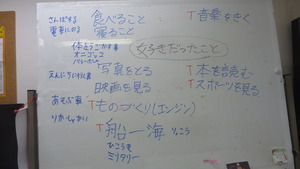 さんぽする
電車にのる
食べること
寝ること
T音楽をきく
体をうごかす事
オニゴッコ
好きだったこと
写真をとる
映画を見る
T本を読む
Tスポーツを見る
あそぶ事
Tものづくり(エンジン)
T船一海
りょこう
ひこうき
ミリタリー